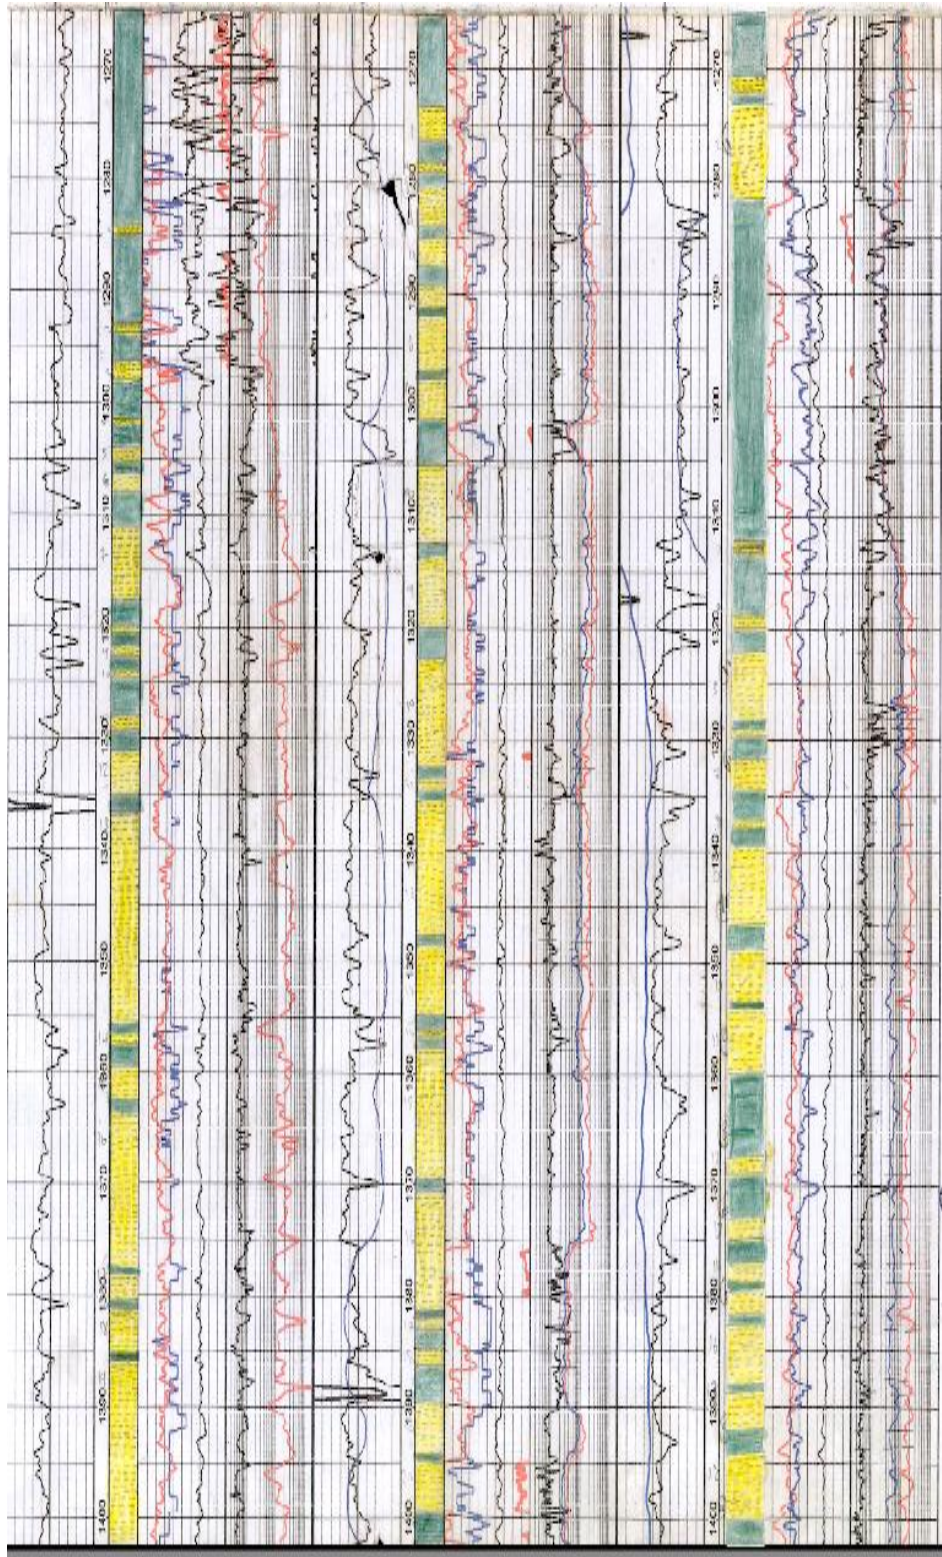 1270
1280
1290
1300
1310
1320
1330
1340
1350
1360
1370
1380
1390
1400
1270
1280
1290
1300
1310
1320
1330
1340
1350
1360
1370
1380
1390
1400
1270
1280
1290
1300
1310
1320
1330
1340
1350
1360
1370
1380
1390
1400